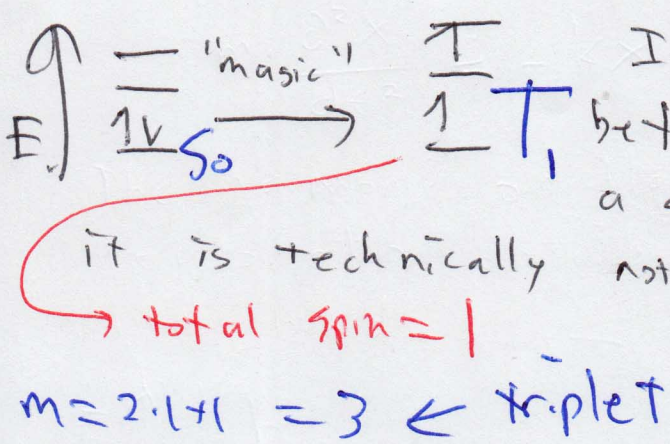 "magic" I
E. 1v S0 1 T1 bet
a
it is technically not
total spin = 1
m = 2.1+1 = 3 ← triplet